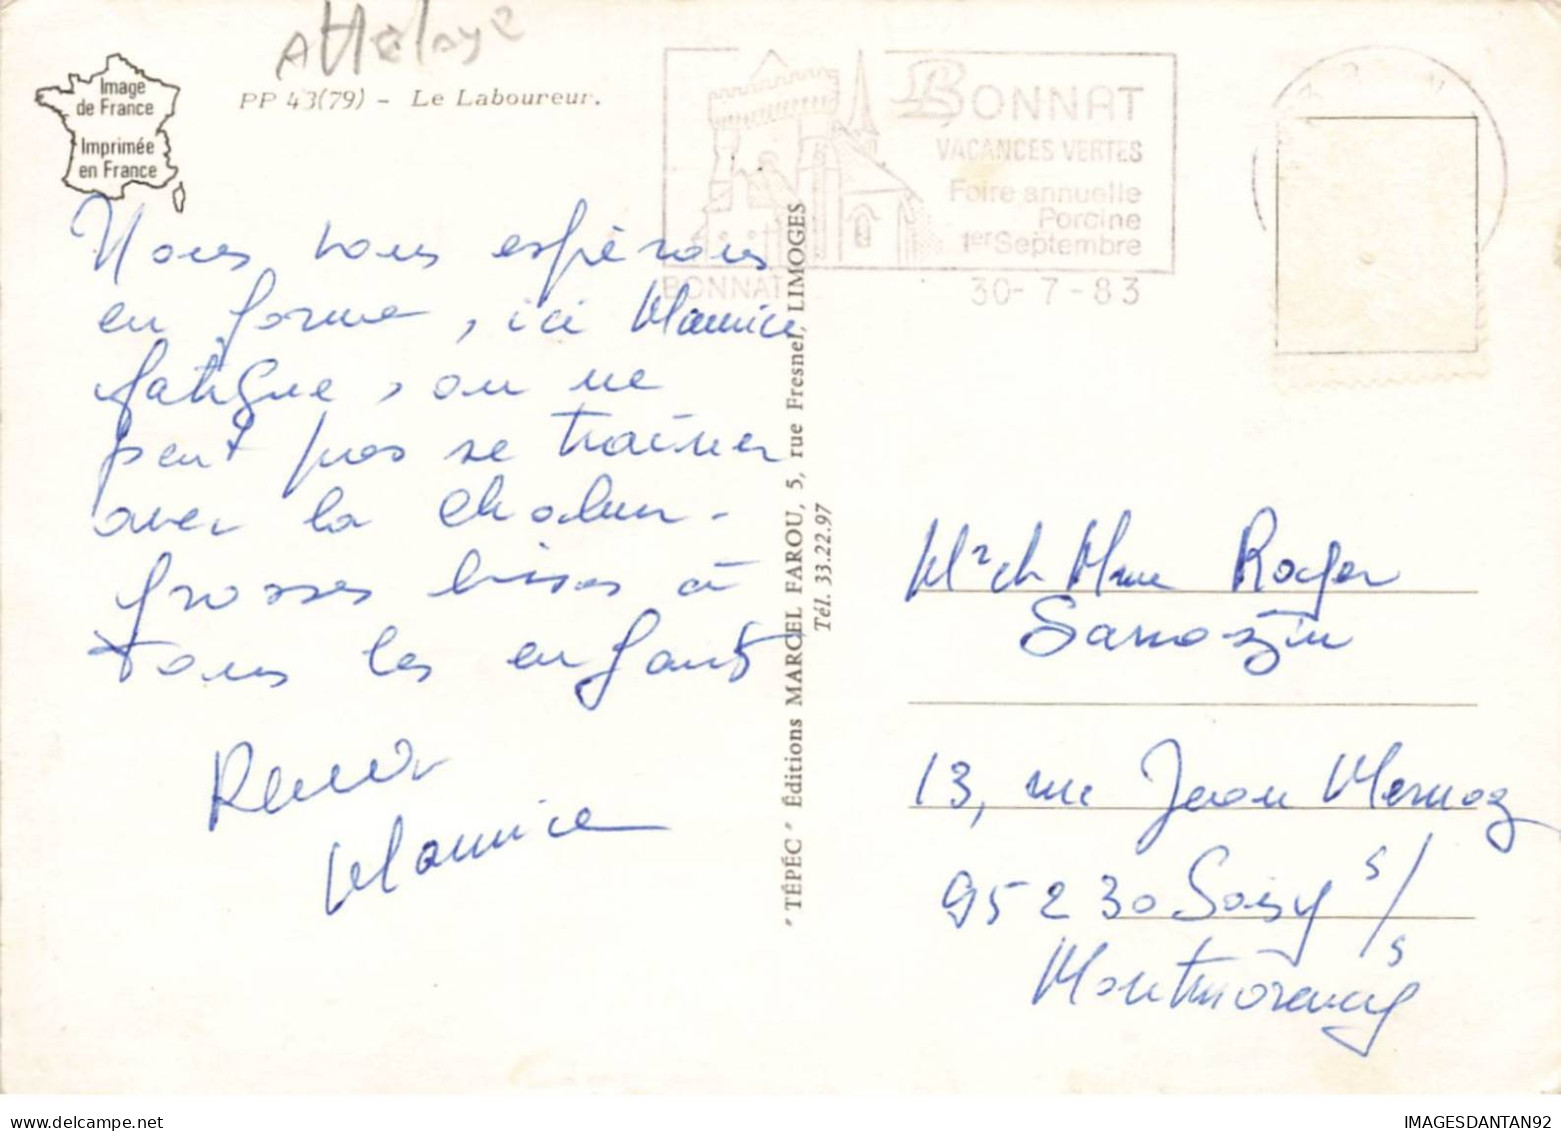 Attelage
Image
de France
Imprimée
en France
PP 43(79) - Le Laboureur.
Nous vous espérons
en forme, ici Maurice
fatigue, on ne
peut pas se trainer
avec la chaleur.
grosses bises à
tous les enfants
Maurice
"TÉPÉC" Éditions MARCEL FAROU, 5, rue Fresnel, LIMOGES
Tél. 33.22.97
BONNAT
VACANCES VERTES
Foire annuelle
Porcine
1er Septembre
BONNAT 30-7-83
Mr et Mme Roger
Sarrazin
13, rue Jean Mermoz
95230 Soisy s/s
Montmorency
IMAGESDANTAN92